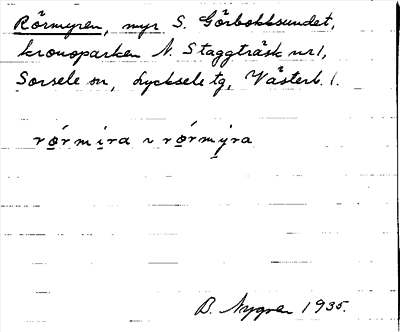 Rörmyren, myr S. Görbokksundet,
kronoparken N. Staggträsk nr 1,
Sorsele sn, Lycksele tg, Västerb. l.
rǫ́rmi̱ra ~ rǫ́rmy̱ra
B. Nygren 1935.